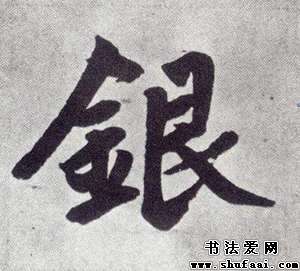 銀
书法爱网
www.shufaai.com